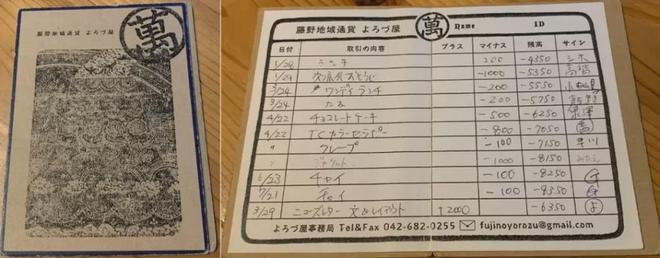 藤野地域通貨 よろづ屋
萬
藤野地域通貨 よろづ屋 萬 Name ID
日付 取引の内容 プラス マイナス 残高 サイン
1/28 ランチ 200 -4350
1/29 -1000 -5350
3/24 ワンデイランチ -200 -5550
3/24 -200 -5750
4/22 チョコレートケーキ -500 -6250
4/22 TCカラーセラピー -800 -7050
〃 クレープ -100 -7150 早川
〃 1000 -8150
6/23 チャイ
7/21 チャイ -100 -8350
3/29 ニュースレター 文&レイアウト +2000 -6350 よ
よろづ屋事務局 Tel&Fax 042-682-0255 fujinoyorozu@gmail.com